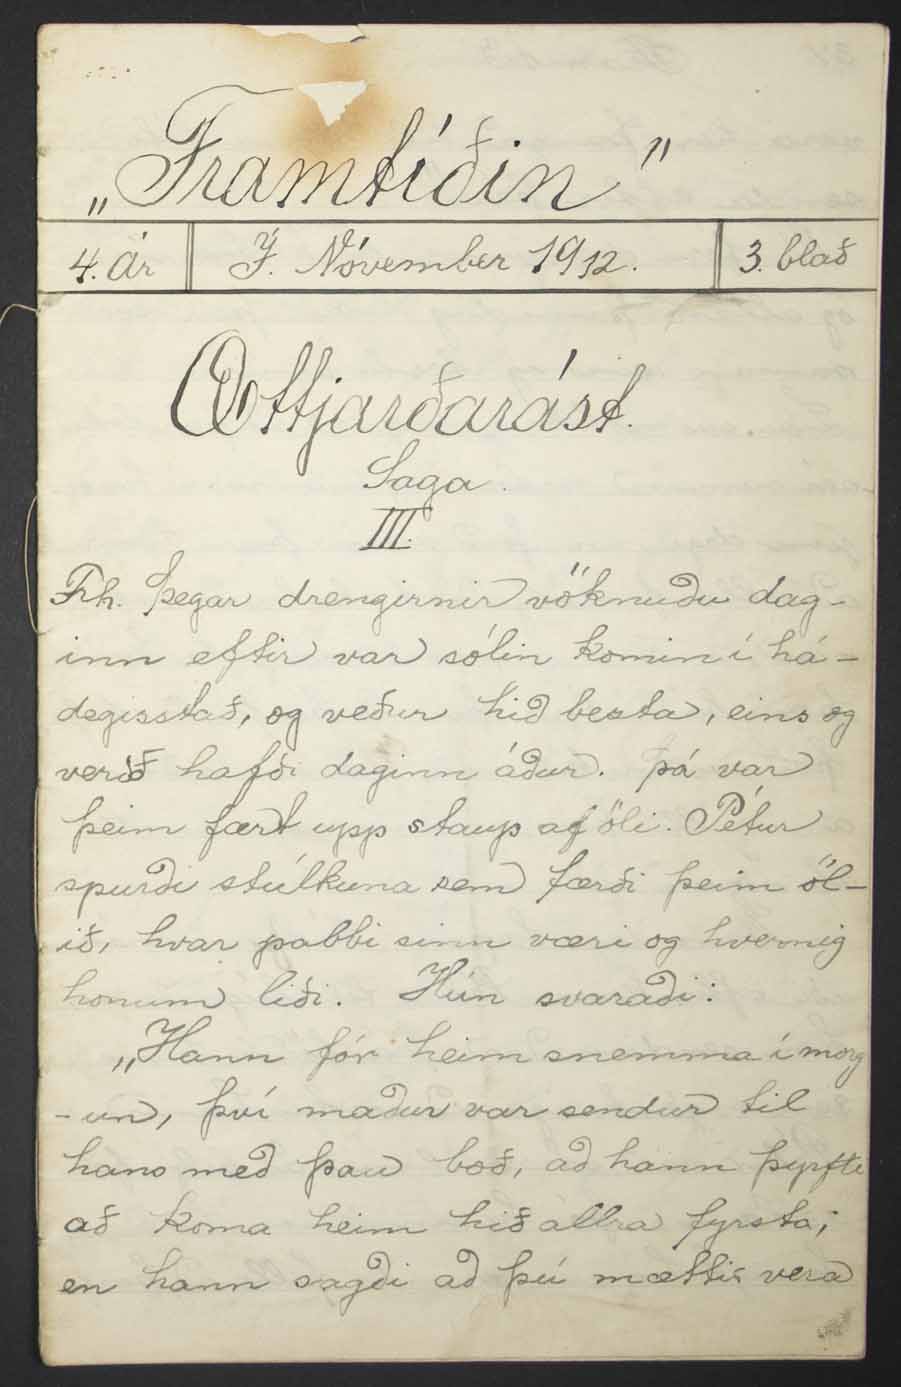 „Framtíðin"
4. ár
7. Nóvember 1912.
3. blað
Ættjarðarást.
Saga.
III.
Frh. Þegar drengirnir vöknuðu dag-
inn eftir var sólin komin í há-
degisstað, og veður hið besta, eins og
verið hafði daginn áður. Þá var
þeim fært upp staup af öli. Pétur
spurði stúlkuna sem færði þeim öl-
ið, hvar pabbi sinn væri og hvernig
honum liði. Hún svaraði:
„Hann fór heim snemma í morg
-un, því maður var sendur til
hans með þau boð, að hann þyrfti
að koma heim hið allra fyrsta;
en hann sagði að þú mættir vera